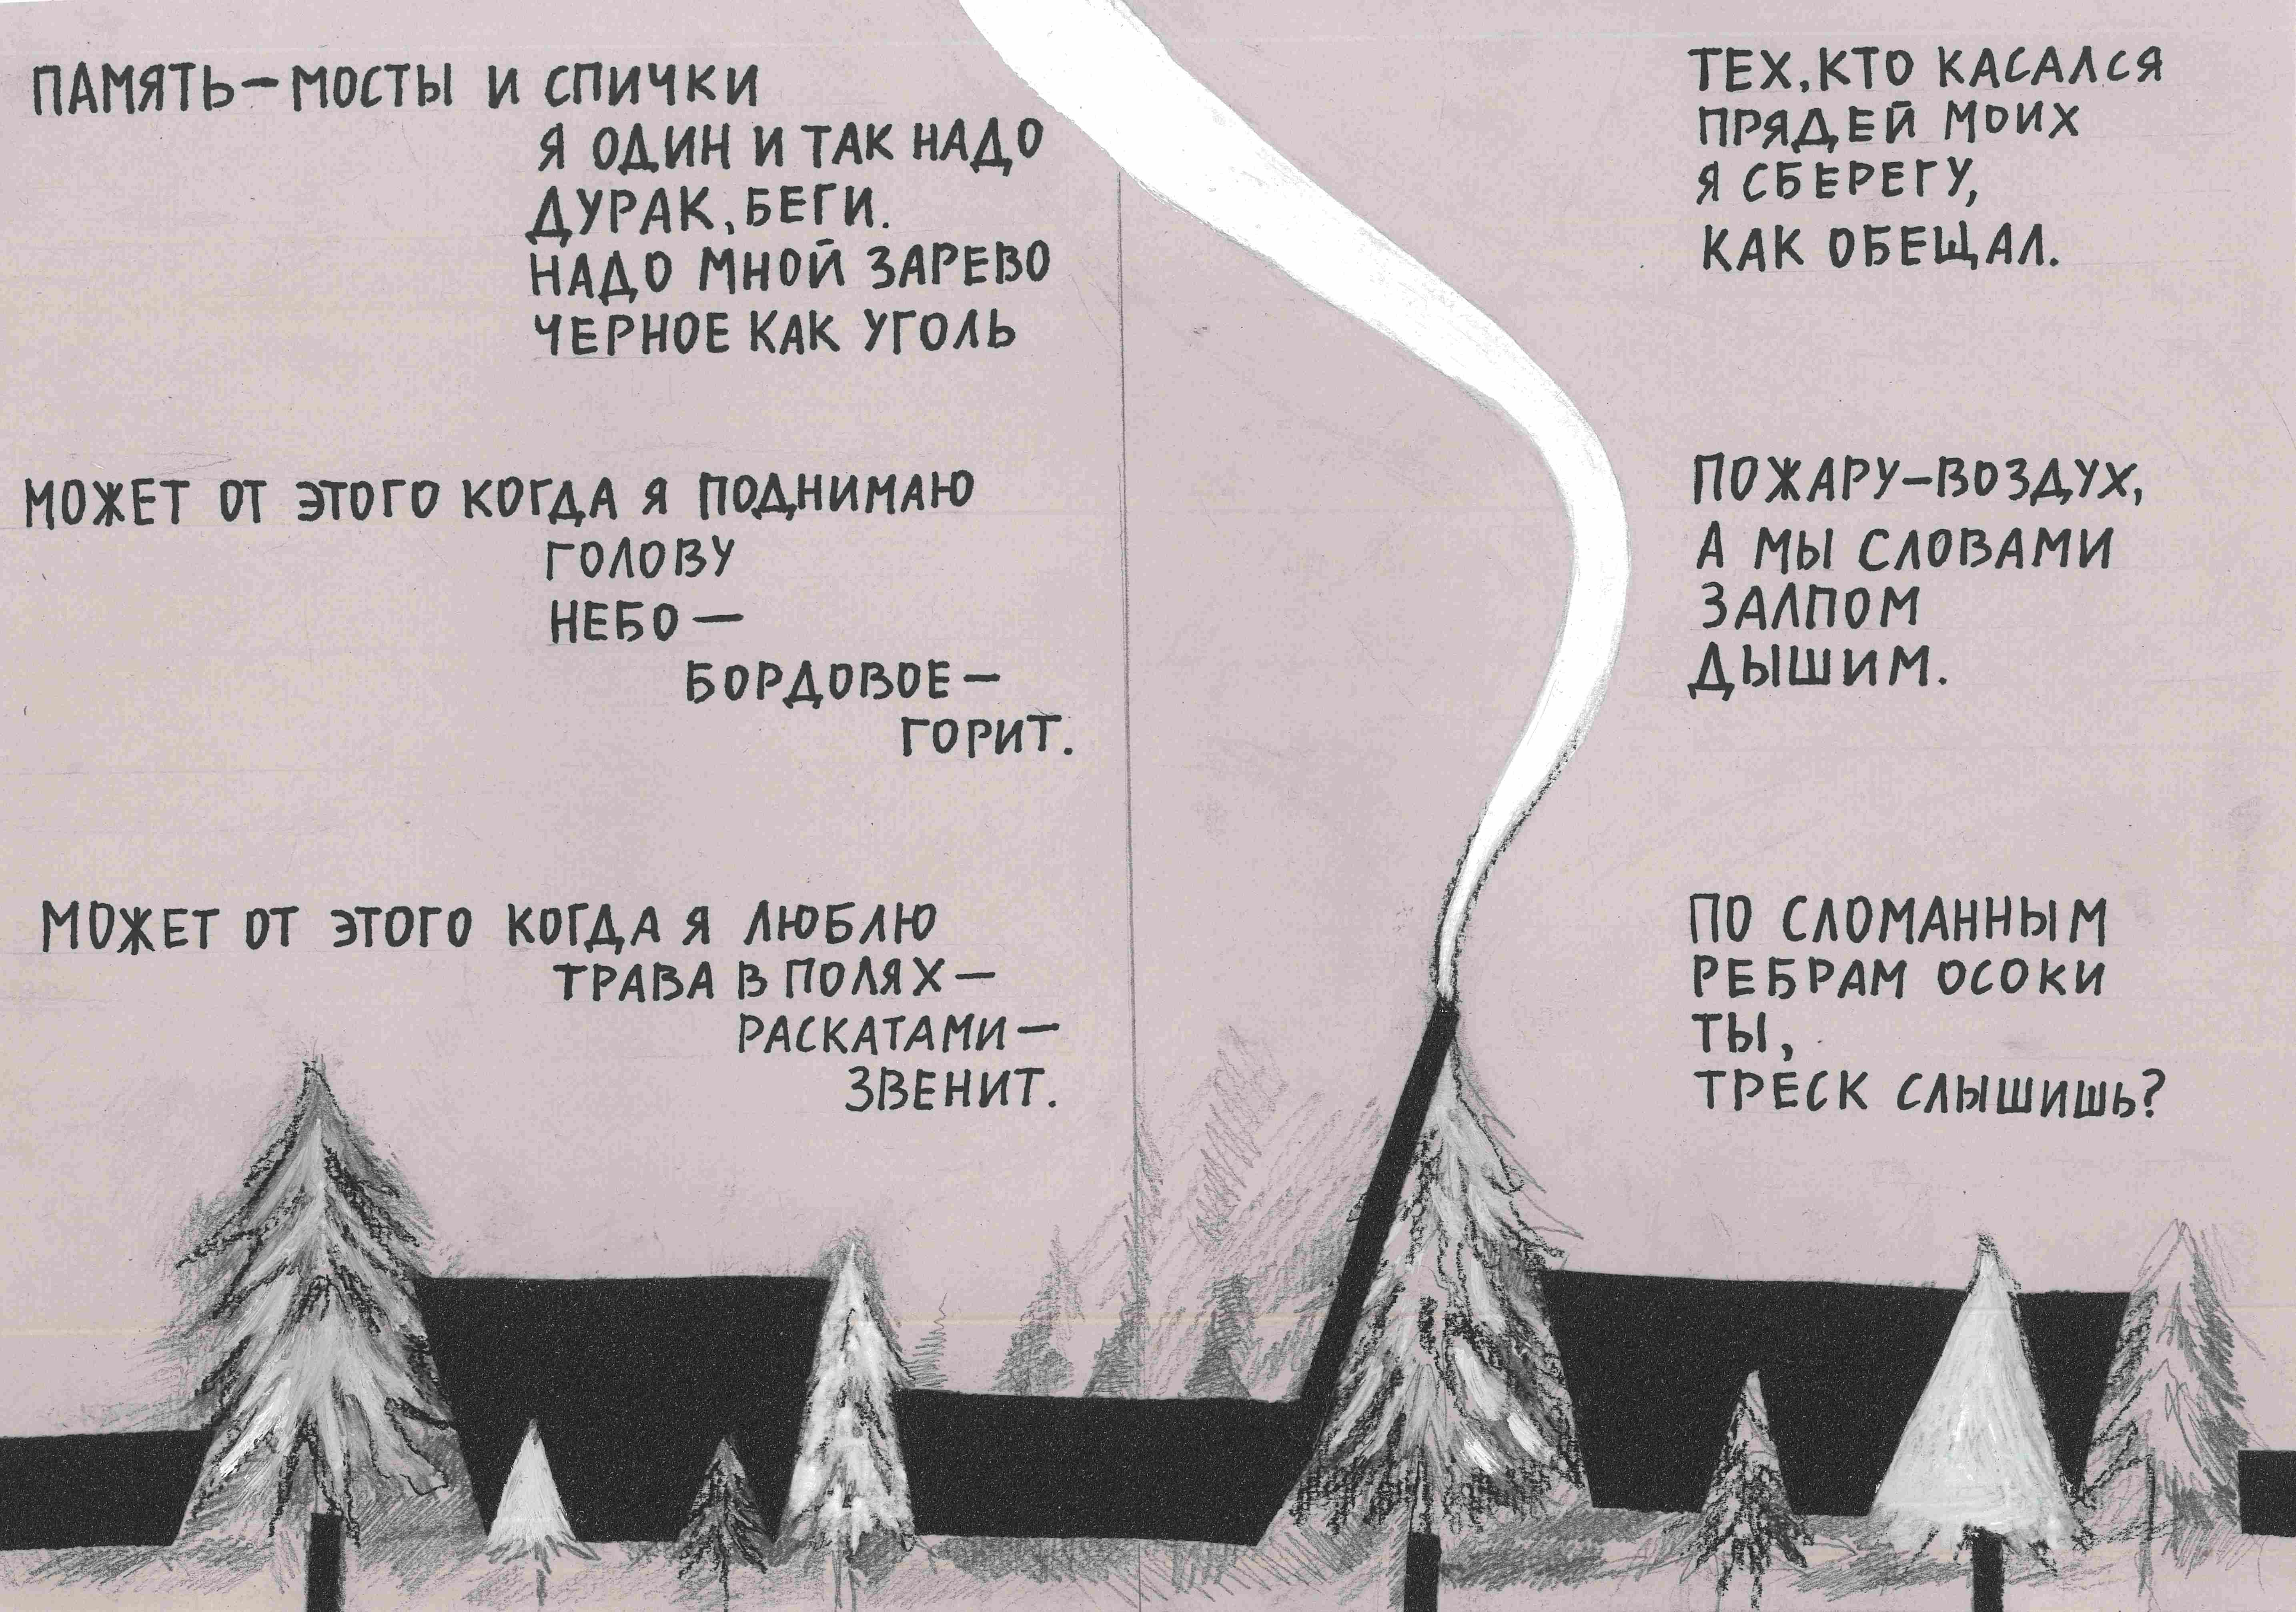 ПАМЯТЬ—МОСТЫ И СПИЧКИ
Я ОДИН И ТАК НАДО
ДУРАК, БЕГИ.
НАДО МНОЙ ЗАРЕВО
ЧЕРНОЕ КАК УГОЛЬ
МОЖЕТ ОТ ЭТОГО КОГДА Я ПОДНИМАЮ
ГОЛОВУ
НЕБО—
БОРДОВОЕ—
ГОРИТ.
МОЖЕТ ОТ ЭТОГО КОГДА Я ЛЮБЛЮ
ТРАВА В ПОЛЯХ—
РАСКАТАМИ—
ЗВЕНИТ.
ТЕХ, КТО КАСАЛСЯ
ПРЯДЕЙ МОИХ
Я СБЕРЕГУ,
КАК ОБЕЩАЛ.
ПОЖАРУ—ВОЗДУХ,
А МЫ СЛОВАМИ
ЗАЛПОМ
ДЫШИМ.
ПО СЛОМАННЫМ
РЕБРАМ ОСОКИ
ТЫ,
ТРЕСК СЛЫШИШЬ?